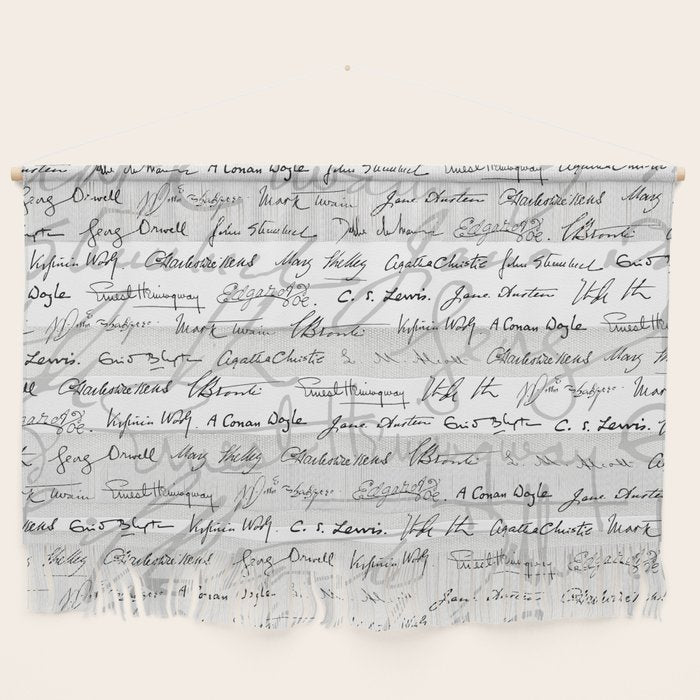 Austen Daphne du Maurier A Conan Doyle John Steinbeck Ernest Hemingway Agatha Christie
Georg Orwell Mark Twain Jane Austen Charles Dickens Mary
Georg Orwell John Steinbeck Daphne du Maurier Edgar A Poe. CBrontë
Virginia Woolf Charles Dickens Mary Shelley Agatha Christie John Steinbeck Enid
Doyle Ernest Hemingway Edgar A Poe. C. S. Lewis. Jane Austen
Mark Twain CBrontë Virginia Woolf A Conan Doyle Ernest Hem
Lewis. Enid Blyton Agatha Christie L. M. Alcott Georg Orwell Charles Dickens Mary Sh
Charles Dickens CBrontë Ernest Hemingway Mark
Edgar A Poe. Virginia Woolf A Conan Doyle Jane Austen Enid Blyton C. S. Lewis. V
Georg Orwell Mary Shelley Charles Dickens CBrontë L. M. Alcott A
Mark Twain Ernest Hemingway Edgar A Poe. A Conan Doyle Jane Austen
Dickens Enid Blyton Virginia Woolf C. S. Lewis. Agatha Christie Mark
Shelley Charles Dickens Georg Orwell Virginia Woolf Ernest Hemingway Edgar A Poe.
A Conan Doyle Jane Austen Charles Dickens